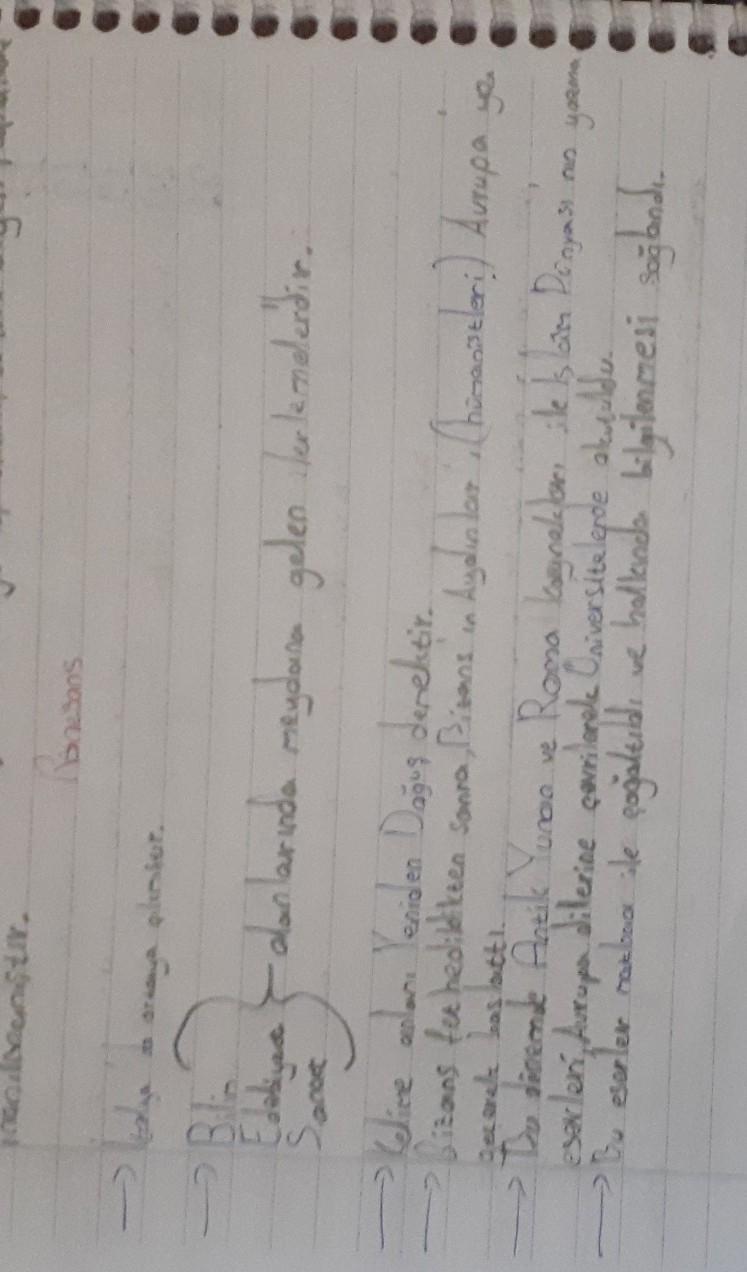 inanılmamıştır.
Rönesans
→ İtalya'da ortaya çıkmıştır.
→ Bilim
Edebiyat } alanlarında meydana gelen ilerlemelerdir.
Sanat
→ Kelime anlamı Yeniden Doğuş demektir.
→ Bizans fethedildikten sonra, Bizans'ın Aydınları (hümanistleri) Avrupa'ya
geçerek başlattı.
→ Bu dönemde Antik Yunan ve Roma kaynakları ile İslam Dünyası'nın
eserleri, Avrupa dillerine çevrilerek Üniversitelerde okutuldu.
→ Bu eserler matbaa ile çoğaltıldı ve halkında bilgilenmesi sağlandı.